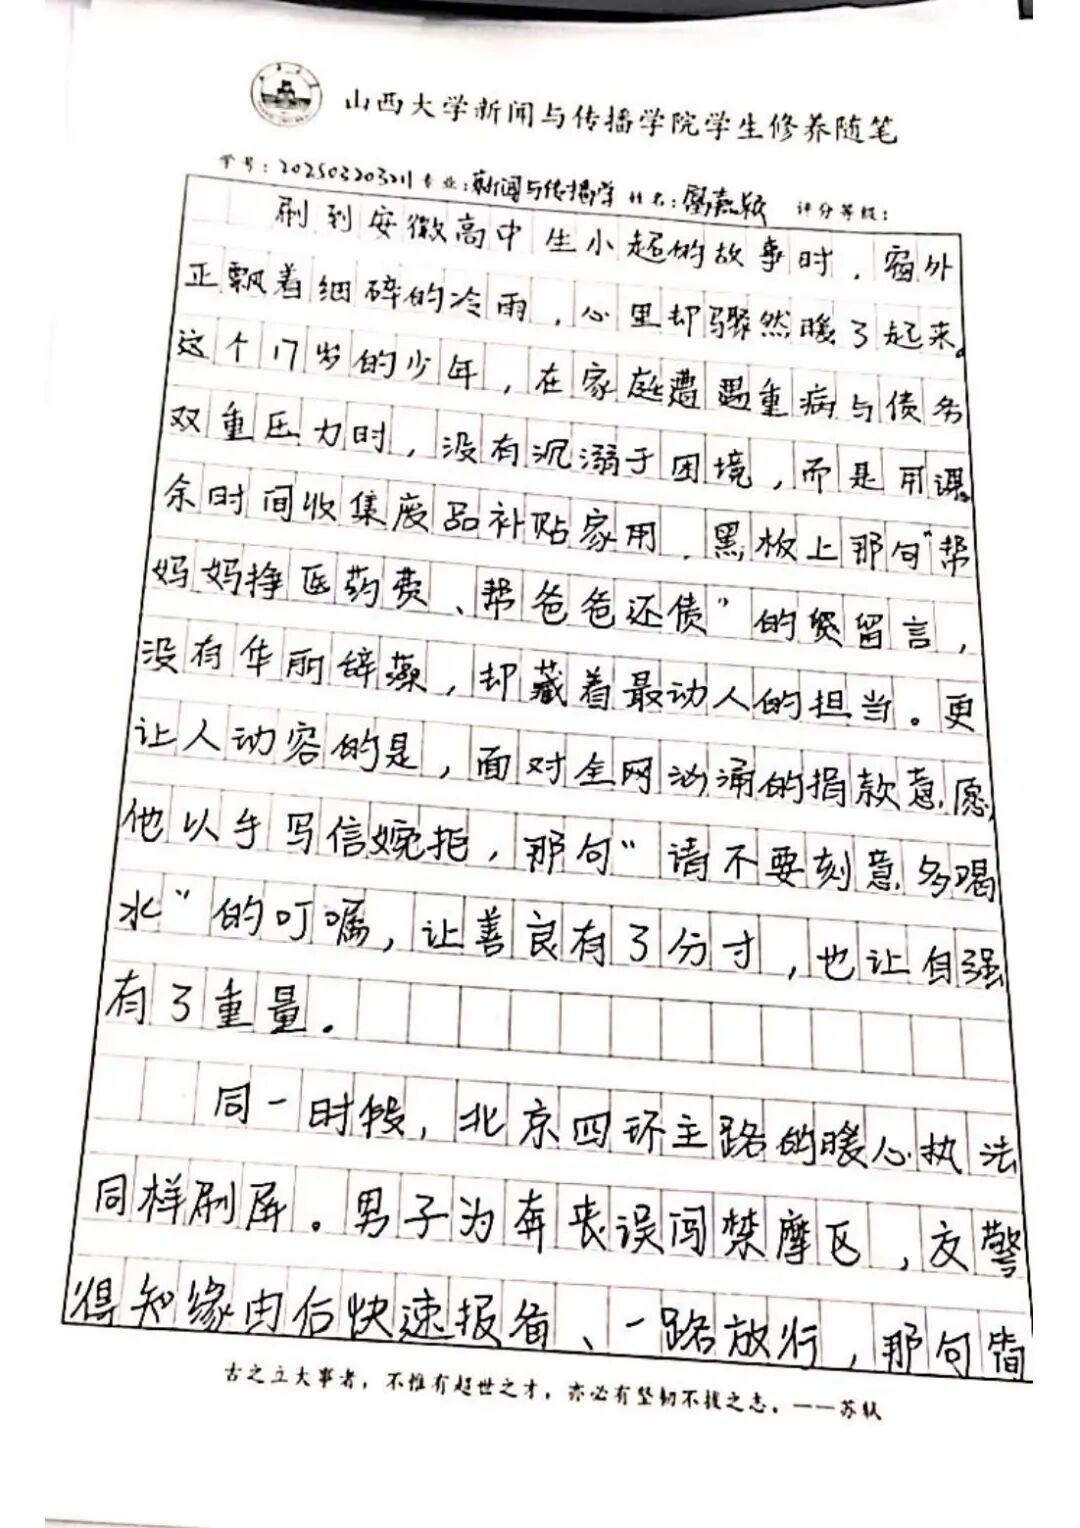 山西大学新闻与传播学院学生修养随笔
学号:20250320321 专业:新闻与传播学 姓名:嘉颖 评分等级:
刷到安徽高中生小超的故事时，窗外
正飘着细碎的冷雨，心里却骤然暖了起来。
这个17岁的少年，在家庭遭遇重病与债务
双重压力时，没有沉溺于困境，而是用课
余时间收集废品补贴家用，黑板上那句“帮
妈妈挣医药费、帮爸爸还债”的留言，
没有华丽辞藻，却藏着最动人的担当。更
让人动容的是，面对全网汹涌的捐款意愿，
他以手写信婉拒，那句“请不要刻意多喝
水”的叮嘱，让善良有了分寸，也让自强
有了重量。
同一时段，北京四环主路的暖心执法
同样刷屏。男子为奔丧误闯禁摩区，交警
得知缘由后快速报备、一路放行，那句
古之立大事者，不惟有超世之才，亦必有坚韧不拔之志。——苏轼